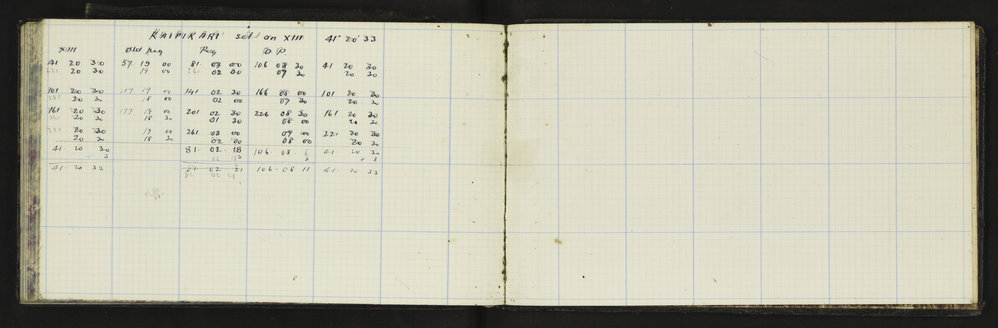 KAIPIKARI set on XIII 41° 20' 33
XIII Old Peg Peg D P
41 20 30 57 19 00 81 03 00 106 08 30 41 20 30
221 20 30 19 00 261 02 30 07 30 20 30
101 20 30 117 19 00 141 02 30 166 08 00 101 20 30
20 30 18 00 02 00 07 30 20 30
161 20 30 177 19 00 201 02 30 226 08 30 161 20 30
20 30 18 30 01 30 08 00 20 30
221 20 30 19 00 261 03 00 09 00 221 20 30
20 30 18 30 02 00 08 00 20 30
41 20 30 81 02 18 106 08 41 20 30
3 02 3 + 3
41 20 33 81 02 21 106 08 11 41 20 33
81 02 21